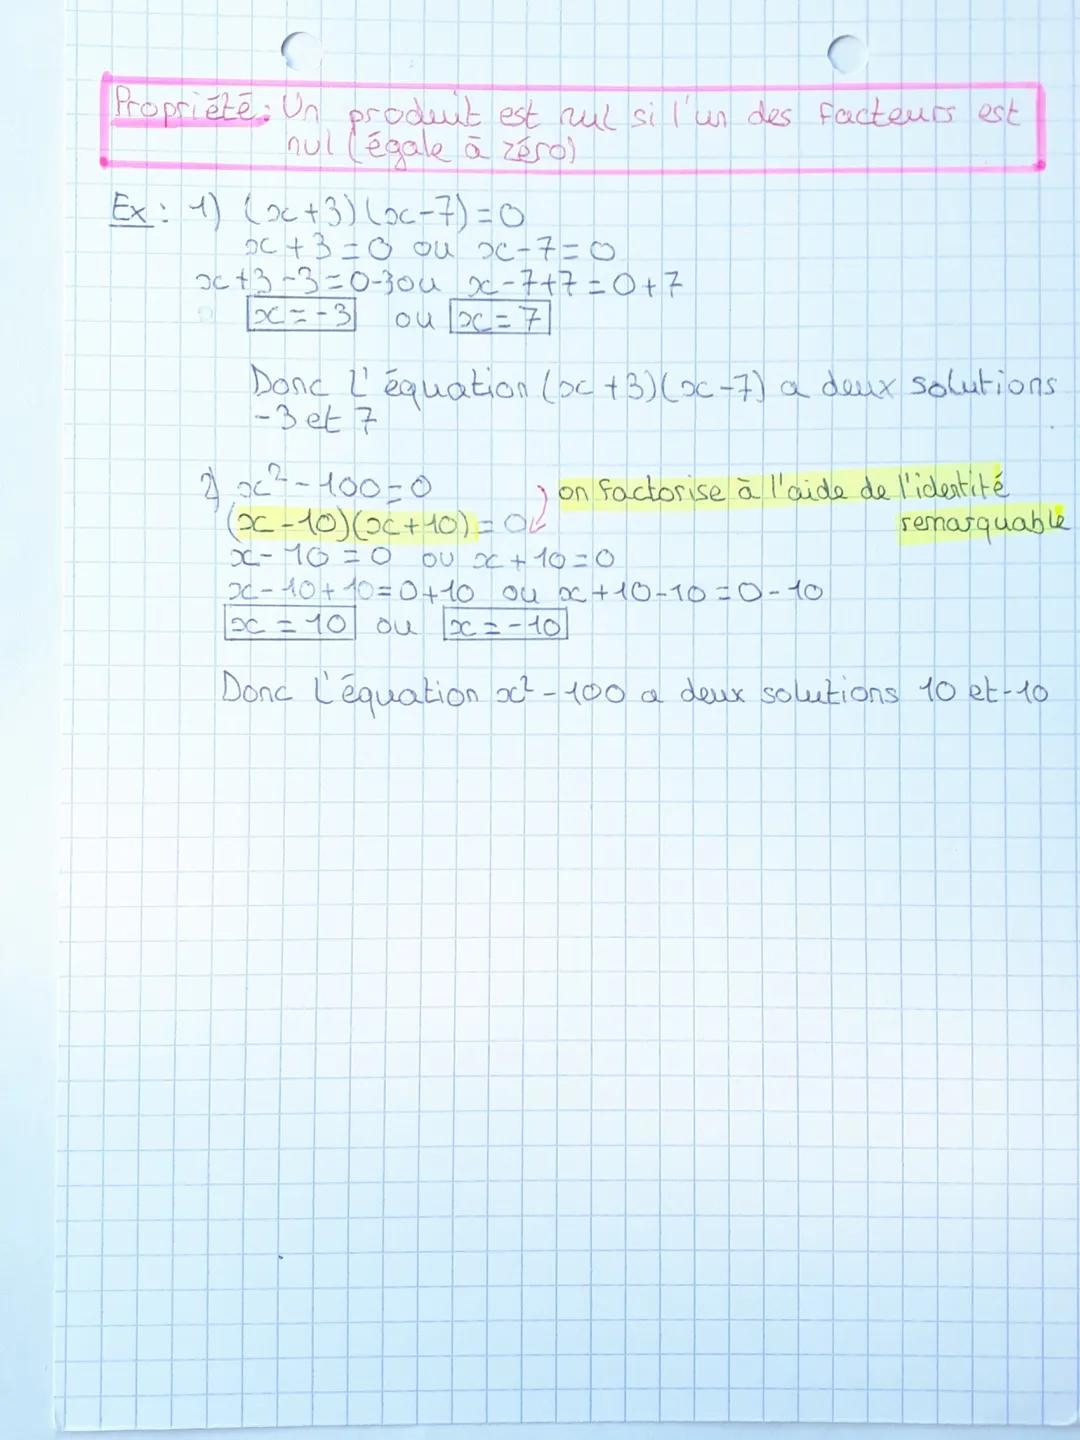 Propriété: Un produit est nul si l'un des facteurs est
nul (égale à zéro)
Ex: 1) (x+3)(x-7)=0
x+3=0 ou x-7=0
x+3-3=0-3 ou x-7+7=0+7
x=-3 ou x=7
Donc l'équation (x+3)(x-7) a deux solutions
-3 et 7
2) x²-100=0 on factorise à l'aide de l'identité
remarquable
(x-10)(x+10)=0
x-10=0 ou x+10=0
x-10+10=0+10 ou x+10-10=0-10
x=10 ou x=-10
Donc l'équation x²-100 a deux solutions 10 et -10